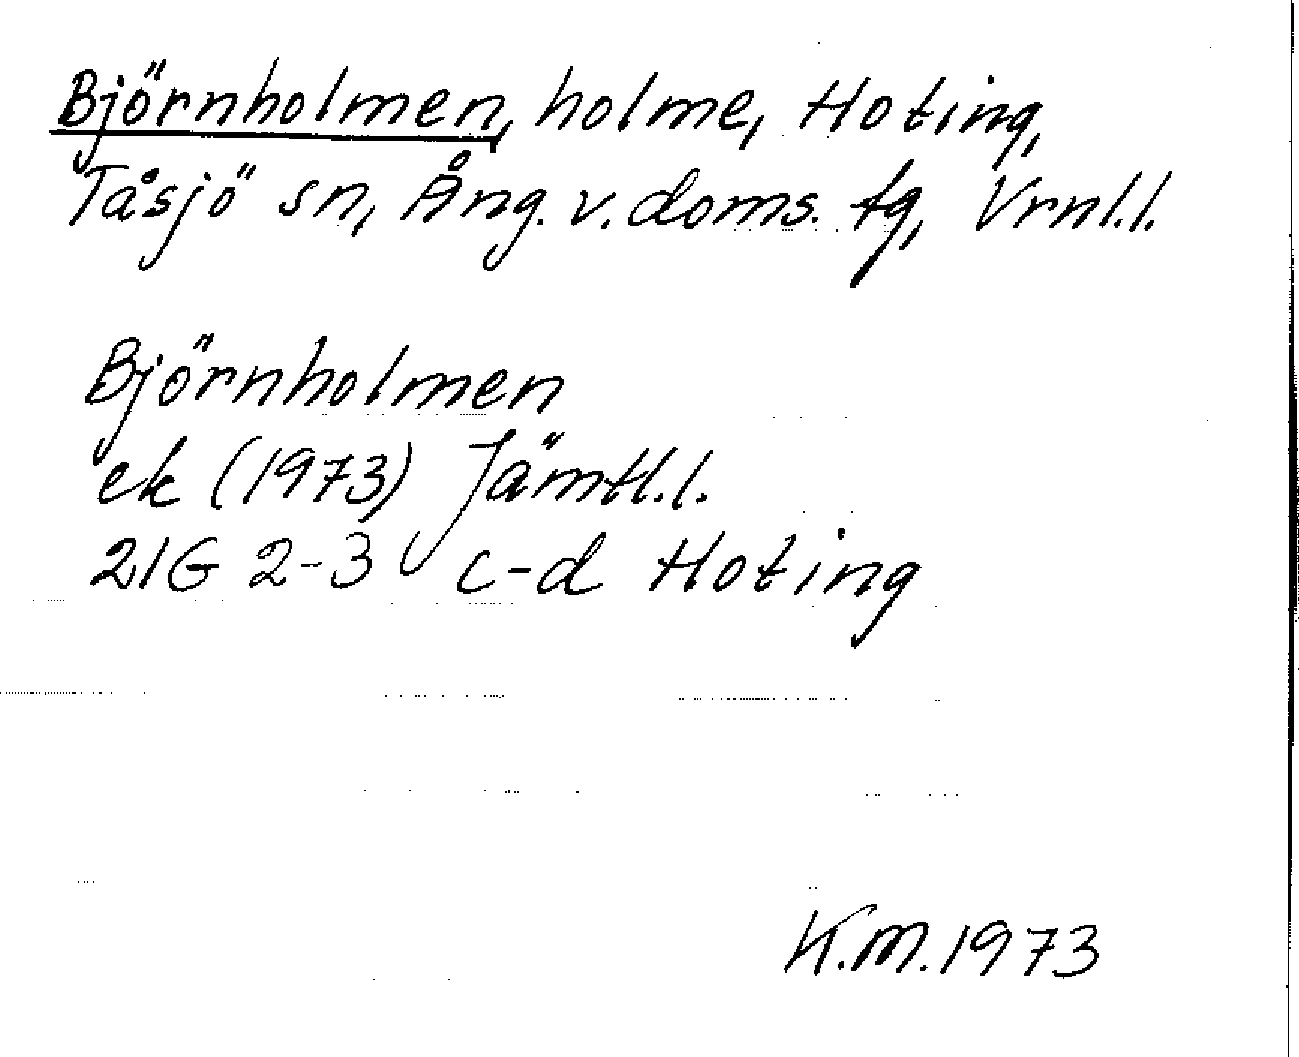 Björnholmen, holme, Hoting,
Tåsjö sn, Ång. v. doms. tg, Vrnl.l.
Björnholmen
ek (1973) Jämtl.l.
21G 2-3 c-d Hoting
K.M. 1973